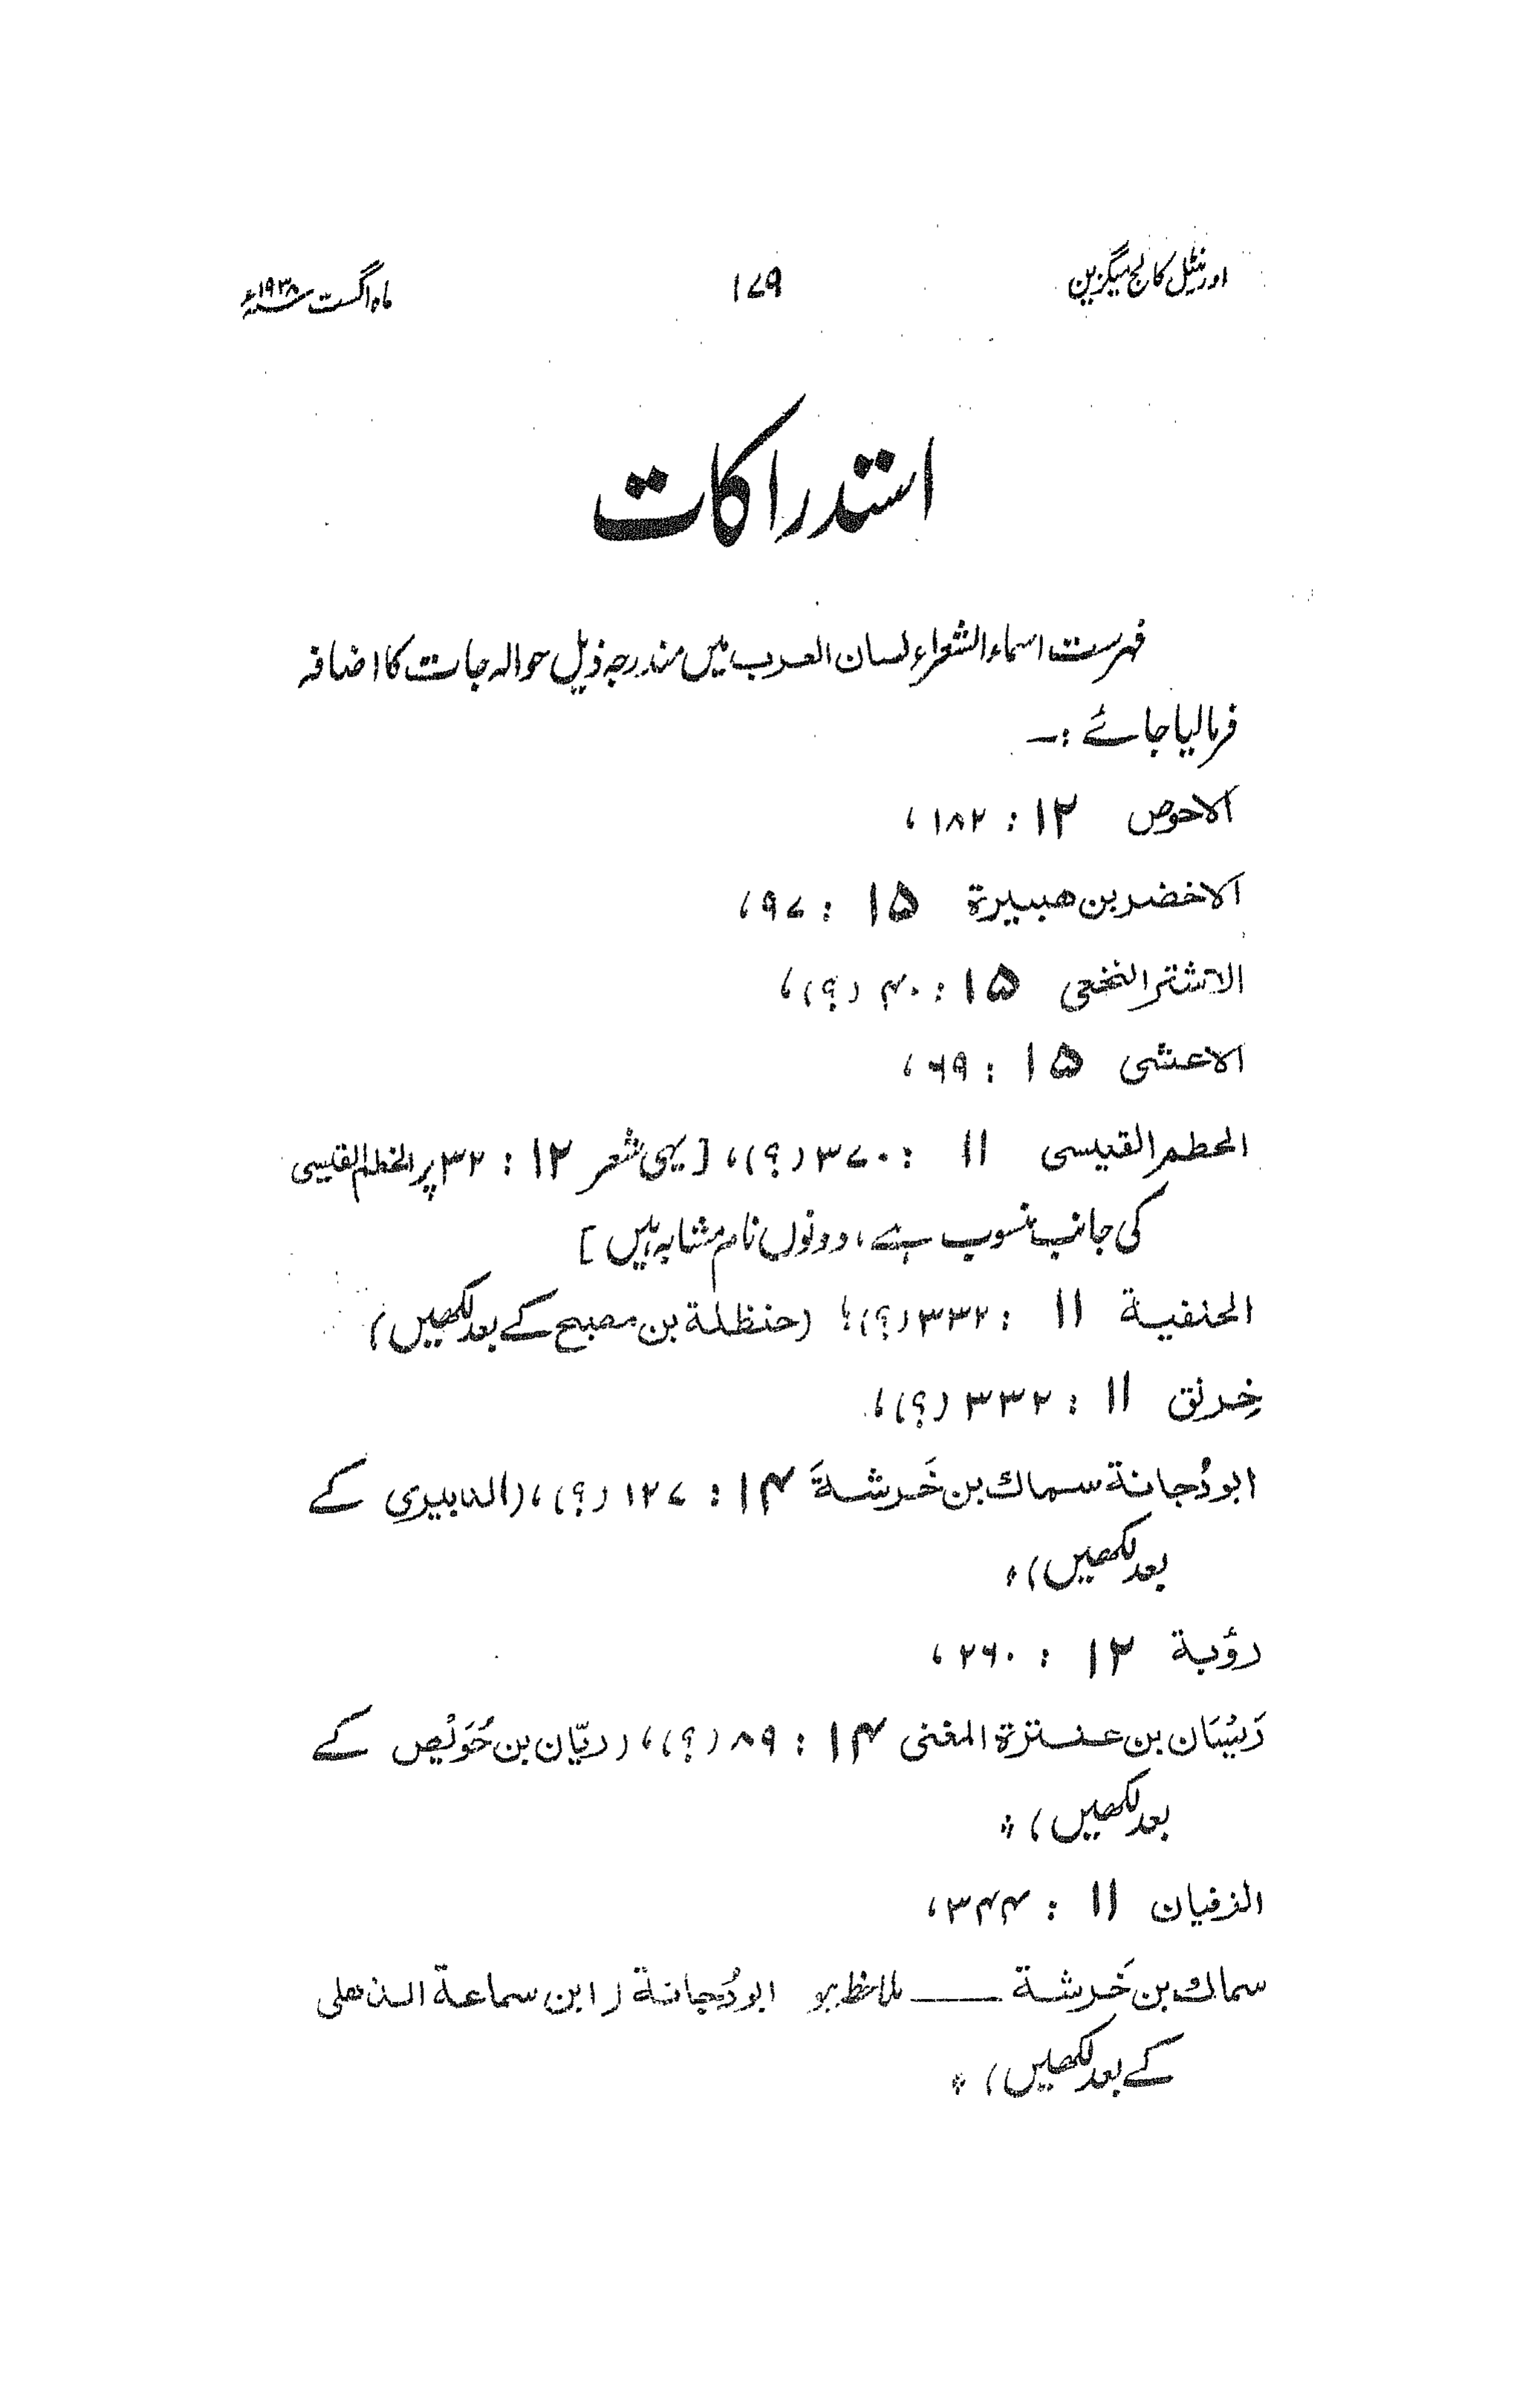 اورنٹیل کالج میگزین ۱۷۹ ماہ اگست ۱۹۳۸ء
استدراکات
فہرست اسماء الشعراء لسان العرب میں مندرجہ ذیل حوالہ جات کا اضافہ
فرمالیا جائے :—
الاحوص ۱۲ : ۱۸۲،
الاخضر بن ھبیرة ۱۵ : ۹۷،
الاشتر النخعی ۱۵ : ۴۰ (؟)،
الاعشی ۱۵ : ۶۹،
الحطم القیسی ۱۱ : ۳۷۰ (؟)، [یہی شعر ۱۲ : ۳۲ پر الخطم القیسی
کی جانب منسوب ہے، دونوں نام مشابہ ہیں]
الحنفیة ۱۱ : ۳۳۲ (؟)؛ (حنظلة بن مصبح کے بعد لکھیں)
خِرنق ۱۱ : ۳۳۲ (؟)،
ابودُجانة سماك بن خَرشةَ ۱۴ : ۱۲۷ (؟)، (الدبیری کے
بعد لکھیں) *
رؤبة ۱۲ : ۲۶۰،
رَیْبَان بن عنترة المغنی ۱۴ : ۸۹ (؟)، (ریّان بن حُوَیْص کے
بعد لکھیں) *
الزفیان ۱۱ : ۳۴۴،
سماك بن خَرشة —— ملاحظہ ہو ابودُجانة (ابن سماعة الذهلی
کے بعد لکھیں) *